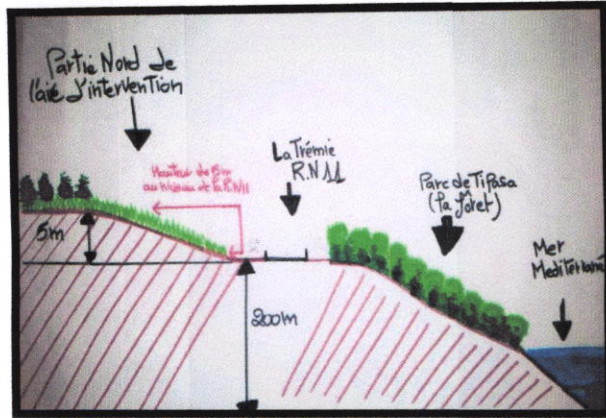 Partie Nord de
l'aire d'intervention
Hauteur de 5m
au niveau de la R.N11
La Trémie
R.N 11
Parc de Tipasa
(la forêt)
Mer
Mediterrané
5m
200m